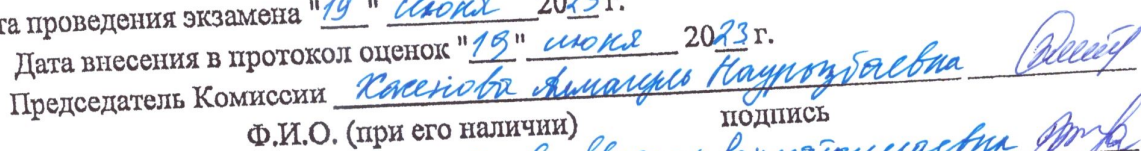 та проведения экзамена "19" июня 2023 г.
Дата внесения в протокол оценок "19" июня 2023 г.
Председатель Комиссии Хасенова Алмагуль Наурызбаевна
Ф.И.О. (при его наличии) подпись